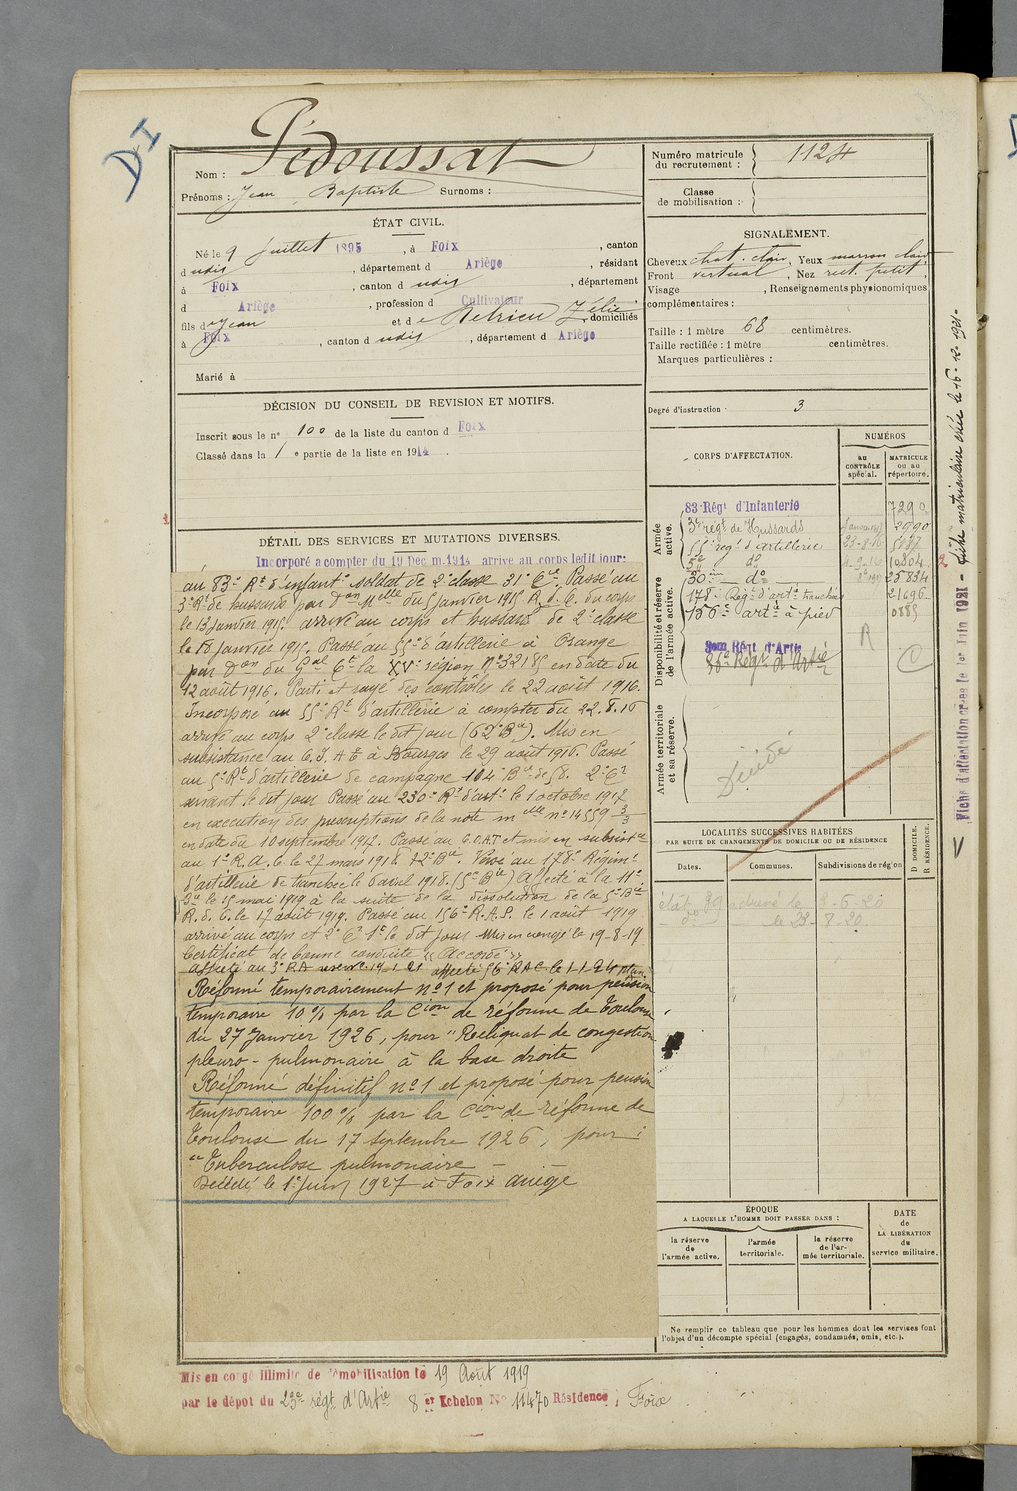 DI
Nom : Pédoussat
Prénoms : Jean Baptiste Surnoms :
ÉTAT CIVIL.
Né le 9 Juillet 1895, à Foix, canton
d udis, département d Ariège, résidant
à Foix, canton d udis, département
d Ariège, profession d Cultivateur
fils de Jean et de Zélie, domiciliés
à Foix, canton d udis, département d Ariège
Marié à
DÉCISION DU CONSEIL DE REVISION ET MOTIFS.
Inscrit sous le n° 100 de la liste du canton d Foix
Classé dans la 1 e partie de la liste en 1914.
DÉTAIL DES SERVICES ET MUTATIONS DIVERSES.
Incorporé a compter du 19 Decem. 1914 arrive au corps ledit jour:
au 83e Rt d'infantie soldat de 2e classe 31e Cie. Passé au
3e Rt de hussards par Don Melle du 5 janvier 1915 R. d. C. du corps
le 13 janvier 1915. arrivé au corps et hussard de 2e classe
le 18 janvier 1915. Passé au 55e d'artillerie à Orange
par Don du Gal Ct la XVe région N° 32185 en date du
12 août 1916. Parti et rayé des contrôles le 22 août 1916.
Incorporé au 55e Rt d'artillerie à compter du 22.8.16
arrivé au corps 2e classe le dit jour (62e Bie). Mis en
subsistance au à Bourges le 29 août 1916. Passé
au 5e Rt d'artillerie de campagne 104 Bie de 58. 2e Cr
servant le dit jour Passé au 230e Rt d'artie le 1 octobre 1917
en execution des prescriptions de la note melle n° 14559-3/3
en date du 10 septembre 1917. Passé au et mis en subsistce
au 1er R. A. C. le 27 mars 1918 Bie. Versé au 178e Régimt
d'artillerie de tranchée le 6 avril 1918. (5e Bie) Affecté à la 11e
Bie le 15 mai 1919 à la suite de la dissolution de la 5e Bie
R. d. C. le 17 août 1919. Passé au 156e R.A.P. le 1 août 1919
arrivé au corps et 2e Cr le dit jour Mis en congé le 19-8-19
Certificat de bonne conduite "Accordé"
affecté au 3e RA 19.1.21 affecté 56e RAC le 1-1-24
Réformé temporairement N° 1 et proposé pour pension
temporaire 10 % par la Cion de réforme de Toulouse
du 27 Janvier 1926, pour "Reliquat de congestion
pleuro-pulmonaire à la base droite
Réformé définitif N° 1 et proposé pour pension
temporaire 100 % par la Cion de réforme de
Toulouse du 17 septembre 1926, pour :
"Tuberculose pulmonaire –
Décédé le 1er Juin 1927 à Foix Ariège
Mis en congé illimité de démobilisation le 19 Août 1919
par le dépot du 23e régt d'Artie 8 er Echelon N° 11470 Résidence ; Foix
Numéro matricule
du recrutement : 1124
Classe
de mobilisation :
SIGNALEMENT.
Cheveux chat. clair, Yeux marron clair
Front vertical, Nez rect. petit,
Visage , Renseignements physionomiques
complémentaires :
Taille : 1 mètre 68 centimètres.
Taille rectifiée : 1 mètre centimètres.
Marques particulières :
Degré d'instruction : 3
CORPS D'AFFECTATION.
NUMÉROS
AU CONTRÔLE spécial.
MATRICULE ou au répertoire.
Armée active.
83 Régt d'Infanterie 7290
3e régt de Hussards 2990
55e régt d'artillerie 23-8-16 5187
5e do 10804
Disponibilité et réserve de l'armée active.
30e do 25834
178e Régt d'arte tranchées 21696
156e arte à pied 0885
R
C
36e Régt d'Artie
Armée territoriale et sa réserve.
Décédé
LOCALITÉS SUCCESSIVES HABITÉES
PAR SUITE DE CHANGEMENTS DE DOMICILE OU DE RÉSIDENCE
Dates.
Communes.
Subdivisions de région
D DOMICILE.
R RÉSIDENCE.
état 39 adressé le 3-6-20
do le 23-8-20
ÉPOQUE
A LAQUELLE L'HOMME DOIT PASSER DANS :
la réserve de l'armée active.
l'armée territoriale.
la réserve de l'armée territoriale.
DATE de LA LIBÉRATION du service militaire.
Ne remplir ce tableau que pour les hommes dont les services font
l'objet d'un décompte spécial (engagés, condamnés, omis, etc.).
Fiche d'affectation créée le 1er Juin 1921 – fiche matriculaire créée le 16-12-1921-